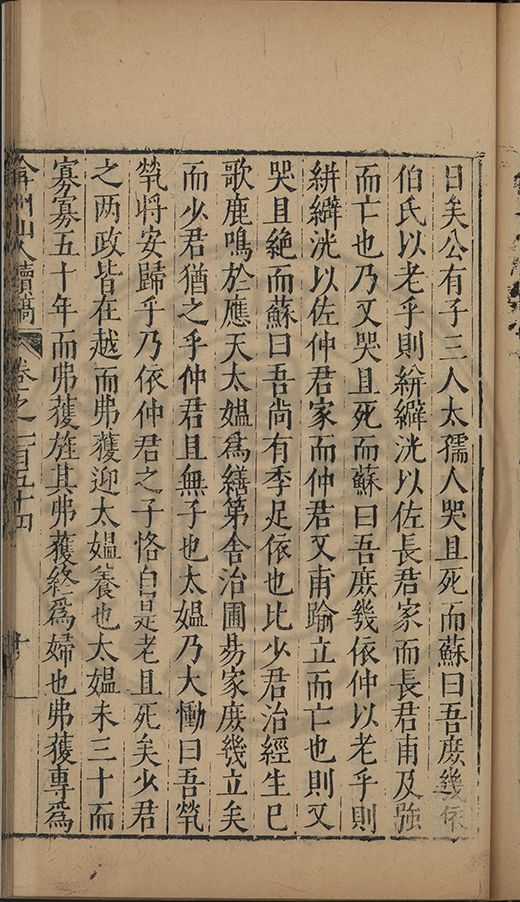 日矣公有子三人太孺人哭且死而蘇曰吾庶幾依
伯氏以老乎則絣纚洸以佐長君家而長君甫及強
而亡也乃又哭且死而蘇曰吾庶幾依仲以老乎則
絣纚洸以佐仲君家而仲君又甫踰立而亡也則又
哭且絕而蘇曰吾尚有季足依也比少君治經生已
歌鹿鳴於應天太媼為繕第舍治圃昜家庶幾立矣
而少君猶之乎仲君且無子也太媼乃大慟曰吾煢
煢將安歸乎乃依仲君之子恪自是老且死矣少君
之两政皆在越而弗獲迎太媼養也太媼未三十而
寡寡五十年而弗獲旌其弗獲終為婦也弗獲專為
弇州山人續稿
卷之一百五十四
十